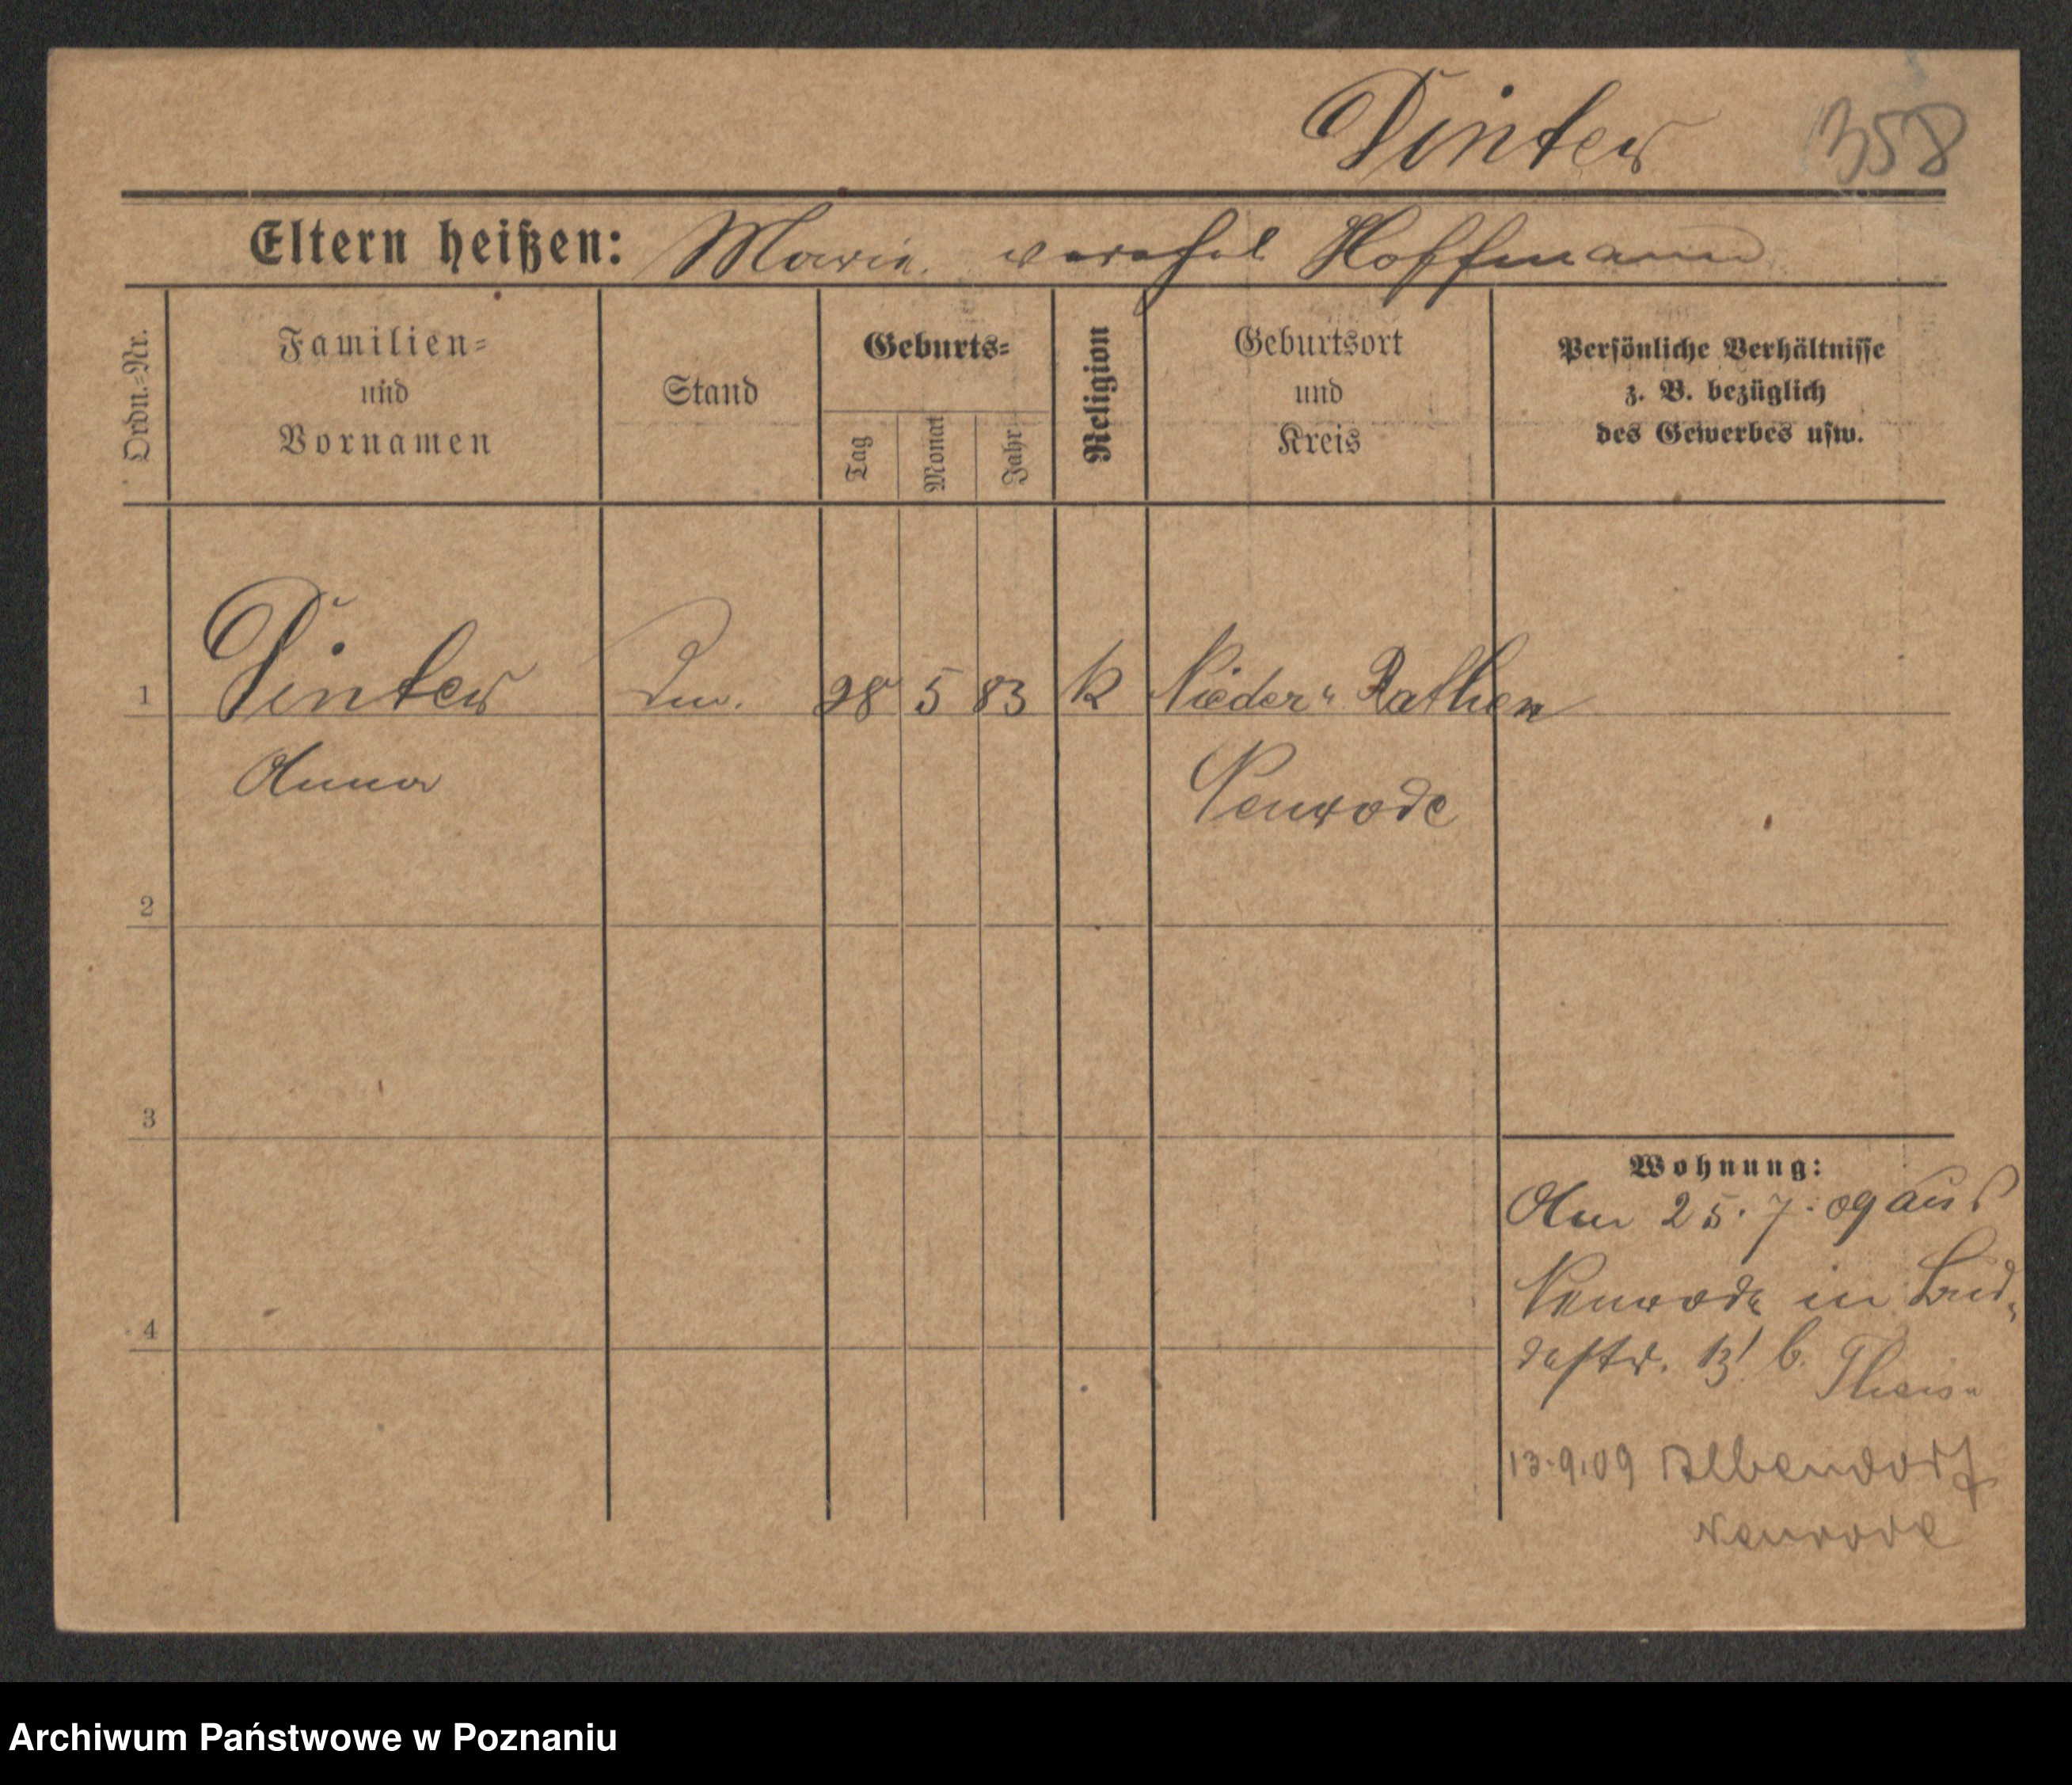 Dinter 358
Eltern heißen: Marie verehel Hoffmann
Ordn.=Nr.
Familien=
und
Vornamen
Stand
Geburts=
Tag
Monat
Jahr
Religion
Geburtsort
und
Kreis
Persönliche Verhältnisse
z. B. bezüglich
des Gewerbes usw.
1 Dinter 28 5 83 k Nieder= Rathen
Anna Neurode
2
3
4
Wohnung:
Am 25. 7. 09 aus
Neurode in
b. Theis
13.9.09 Albendorf
Neurode
Archiwum Państwowe w Poznaniu